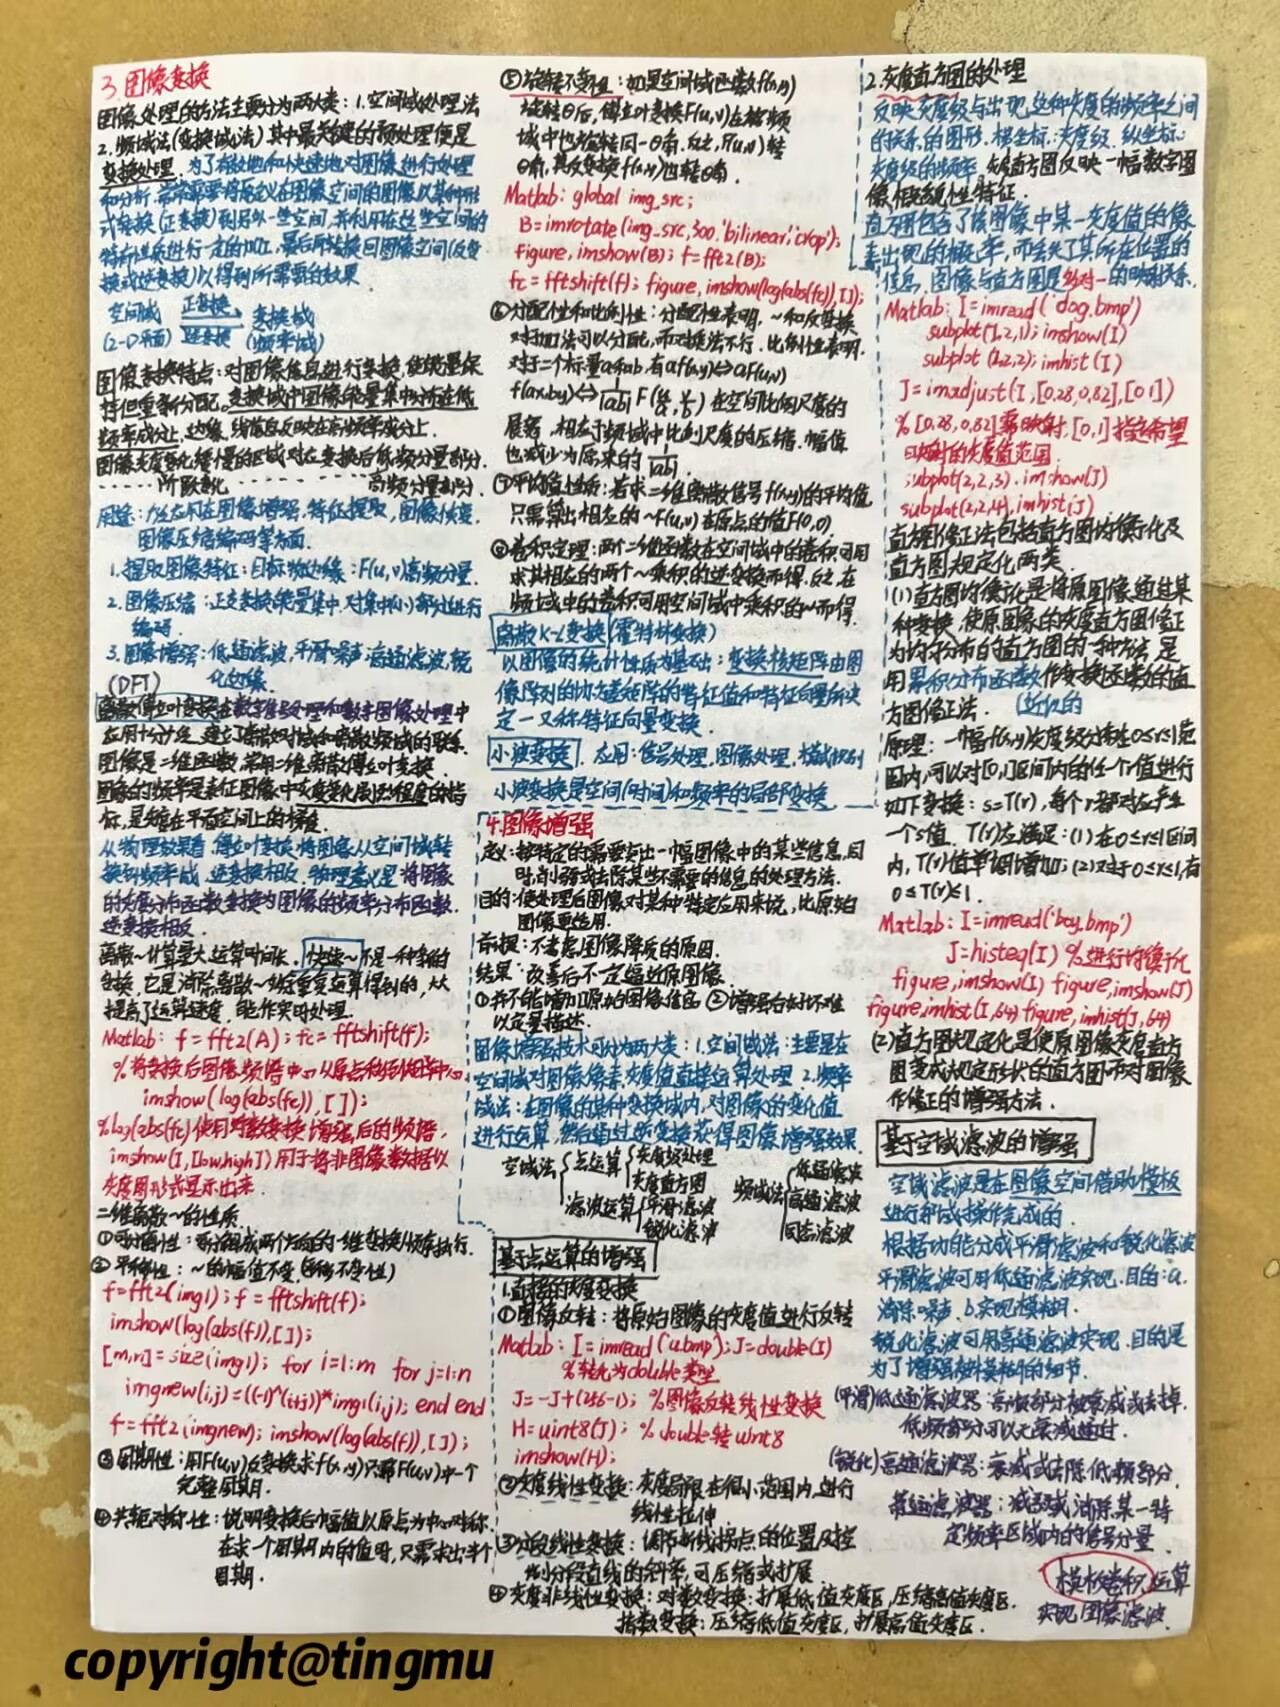 3.图像变换
图像处理的方法主要分为两大类：1.空间域处理法
2.频域法(变换域法) 其中最关键的预处理便是
变换处理. 为了有效地和快速地对图像进行处理
和分析,常常需要将定义在图像空间的图像以某种形
式转换(正变换)到另外一些空间,并利用在这些空间的
特有性质进行一定的加工,最后再转换回图像空间(反变
换或逆变换)以得到所需要的效果
空间域 正变换 变换域
(2-D平面) 逆变换 (频率域)
图像变换特点：对图像信息进行变换,使能量保
持但重新分配。变换域中图像能量集中分布在低
频率成分上,边缘、线信息反映在高频率成分上.
图像灰度变化缓慢的区域对应变换后低频分量部分.
阶跃变化 高频分量部分.
用途：广泛应用在图像增强,特征提取,图像恢复,
图像压缩编码等方面.
1.提取图像特征：目标物边缘：F(u,v)高频分量.
2.图像压缩：正交变换能量集中,对集中(小)部分进行
编码.
3.图像增强：低通滤波,平滑噪声;高通滤波,锐
化边缘.
(DFT)
离散傅立叶变换在数字信号处理和数字图像处理中
应用十分广泛,建立了离散时域和离散频域的联系.
图像是二维函数,常用二维离散傅立叶变换.
图像的频率是表征图像中灰度变化剧烈程度的指
标,是灰度在平面空间上的梯度.
从物理效果看,傅立叶变换将图像从空间域转
换到频率域,逆变换相反.物理意义是将图像
的灰度分布函数变换为图像的频率分布函数.
逆变换相反.
离散~计算量大,运算时间长. 快速~不是一种新的
变换,它是消除离散~的重复运算得到的,大大
提高了运算速度,能作实时处理.
Matlab: f=fft2(A); fc=fftshift(f);
imshow(log(abs(fc)),[]);
%log(abs(fc)使用对数变换增强后的频谱,
imshow(I,[low,high])用于将非图像数据以
灰度图形式显示出来.
二维离散~的性质
①可分离性：可分解成两个方向的一维变换顺序执行.
②平移性：~的幅值不变.(移不变性)
f=fft2(img1); f=fftshift(f);
imshow(log(abs(f)),[]);
[m,n]=size(img1); for i=1:m for j=1:n
imgnew(i,j)=((-1)^(i+j))*img1(i,j); end end
f=fft2(imgnew); imshow(log(abs(f)),[]);
③周期性：用F(u,v)反变换求f(x,y)只需F(u,v)中一个
完整周期.
④共轭对称性：说明变换后幅值以原点为中心对称.
在求一个周期内的值时,只需求出半个
周期.
⑤旋转不变性：如果空间域函数f(x,y)
旋转θ后,傅立叶变换F(u,v)在幅频
域中也旋转同一θ角.反之,F(u,v)转
θ角,其反变换f(x,y)也转θ角.
Matlab: global img_src;
B=imrotate(img_src,300,'bilinear','crop');
figure,imshow(B); f=fft2(B);
fc=fftshift(f); figure,imshow(log(abs(fc)),[]);
⑥分配性和比例性：分配性表明,~和反变换
对加法可以分配,而对乘法不行.比例性表明,
对于二个标量a和b,有af(x,y)⇔aF(u,v)
f(ax,by)⇔1/|ab| F(u/a, v/b) 在空间比例尺度的
展宽,相应于频域中比例尺度的压缩.幅值
也减少为原来的 1/|ab|
⑦平均值性质：若求二维离散信号f(x,y)的平均值
只需算出相应的~F(u,v)在原点的值F(0,0)
⑧卷积定理：两个二维函数在空间域中的卷积可用
求其相应的两个~乘积的逆变换而得.反之,在
频域中的卷积可用空间域中乘积的~而得.
离散K-L变换 (霍特林变换)
以图像的统计性质为基础：变换核矩阵由图
像阵列的协方差矩阵的特征值和特征向量所决
定—又称特征向量变换.
小波变换. 应用：信号处理,图像处理,模式识别
小波变换是空间(时间)和频率的局部变换
4.图像增强
定义：按特定的需要突出一幅图像中的某些信息,同
时,削弱或去除某些不需要的信息的处理方法.
目的：使处理后图像对某种特定应用来说,比原始
图像更适用.
前提：不考虑图像降质的原因.
结果：改善后不一定逼近原图像.
①并不能增加原始图像信息 ②增强后好坏难
以定量描述.
图像增强技术可分为两大类：1.空间域法：主要是在
空间域对图像像素灰度值直接运算处理 2.频率
域法：在图像的某种变换域内,对图像的变化值
进行运算,然后通过逆变换获得图像增强效果.
空域法 点运算 灰度级处理 灰度直方图
滤波运算 平滑滤波 锐化滤波
频域法 低通滤波 高通滤波 同态滤波
基于点运算的增强
1.直接的灰度变换
①图像反转：将原始图像的灰度值进行反转
Matlab: I=imread('u.bmp'); J=double(I)
%转化为double类型
J=-J+(256-1); %图像反转线性变换
H=uint8(J); %double转uint8
imshow(H);
②灰度线性变换：灰度局限在很小范围内,进行
线性拉伸
③分段线性变换：调节折线拐点的位置及控
制分段直线的斜率,可压缩或扩展
④灰度非线性变换：对数变换：扩展低值灰度区,压缩高值灰度区.
指数变换：压缩低值灰度区,扩展高值灰度区.
2.灰度直方图的处理
反映灰度级与出现这种灰度的频率之间
的关系的图形.横坐标：灰度级.纵坐标：
灰度级的频率. 直方图反映一幅数字图
像概貌性特征.
直方图包含了该图像中某一灰度值的像
素出现的概率,而丢失了其所在位置的
信息. 图像与直方图是多对一的映射关系.
Matlab: I=imread('dog.bmp')
subplot(1,2,1); imshow(I)
subplot(1,2,2); imhist(I)
J=imadjust(I,[0.28,0.82],[0 1])
%[0.28,0.82]需映射,[0,1]指定希望
映射的灰度值范围.
subplot(2,2,3). imshow(J)
subplot(2,2,4), imhist(J)
直方图修正法包括直方图均衡化及
直方图规定化两类.
(1)直方图均衡化是将原图像通过某
种变换,使原图像的灰度直方图修正
为均匀分布的直方图的一种方法,是
用累积分布函数作变换函数的直
方图修正法. (近似的
原理：一幅f(x,y)灰度级分布在0≤r≤1范
围内,可以对[0,1]区间内的任一个r值进行
如下变换：s=T(r),每个r都对应产生
一个s值. T(r)应满足：(1)在0≤r≤1区间
内,T(r)值单调增加;(2)对于0≤r≤1,有
0≤T(r)≤1.
Matlab: I=imread('boy.bmp')
J=histeq(I) %进行均衡化
figure,imshow(I) figure,imshow(J)
figure,imhist(I,64) figure,imhist(J,64)
(2)直方图规定化是使原图像灰度直方
图变成规定形状的直方图而对图像
作修正的增强方法.
基于空域滤波的增强
空域滤波是在图像空间借助模板
进行邻域操作完成的.
根据功能分成平滑滤波和锐化滤波
平滑滤波可用低通滤波实现.目的：a.
消除噪声 b.实现模糊.
锐化滤波可用高通滤波实现.目的是
为了增强被模糊的细节.
(平滑)低通滤波器：高频部分被衰减或去掉.
低频部分可以无衰减通过.
(锐化)高通滤波器：衰减或去除低频部分.
带通滤波器：减弱或消除某一特
定频率区域内的信号分量
模板卷积 运算
实现图像滤波.
copyright@tingmu